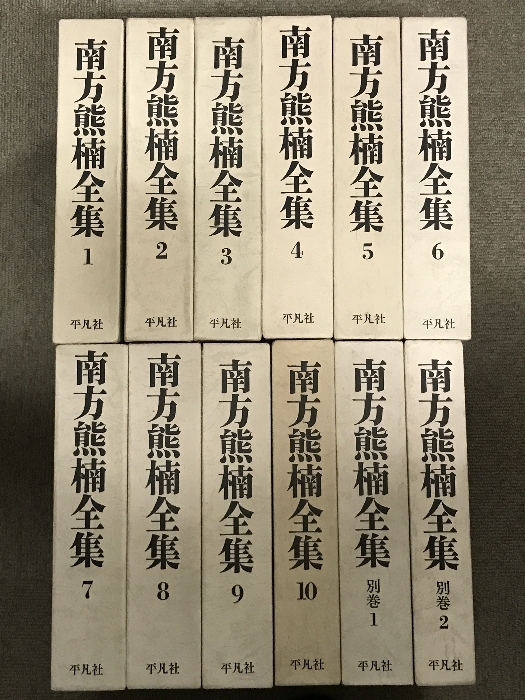 南方熊楠全集
1
平凡社
南方熊楠全集
2
平凡社
南方熊楠全集
3
平凡社
南方熊楠全集
4
平凡社
南方熊楠全集
5
平凡社
南方熊楠全集
6
平凡社
南方熊楠全集
7
平凡社
南方熊楠全集
8
平凡社
南方熊楠全集
9
平凡社
南方熊楠全集
10
平凡社
南方熊楠全集
別巻
1
平凡社
南方熊楠全集
別巻
2
平凡社